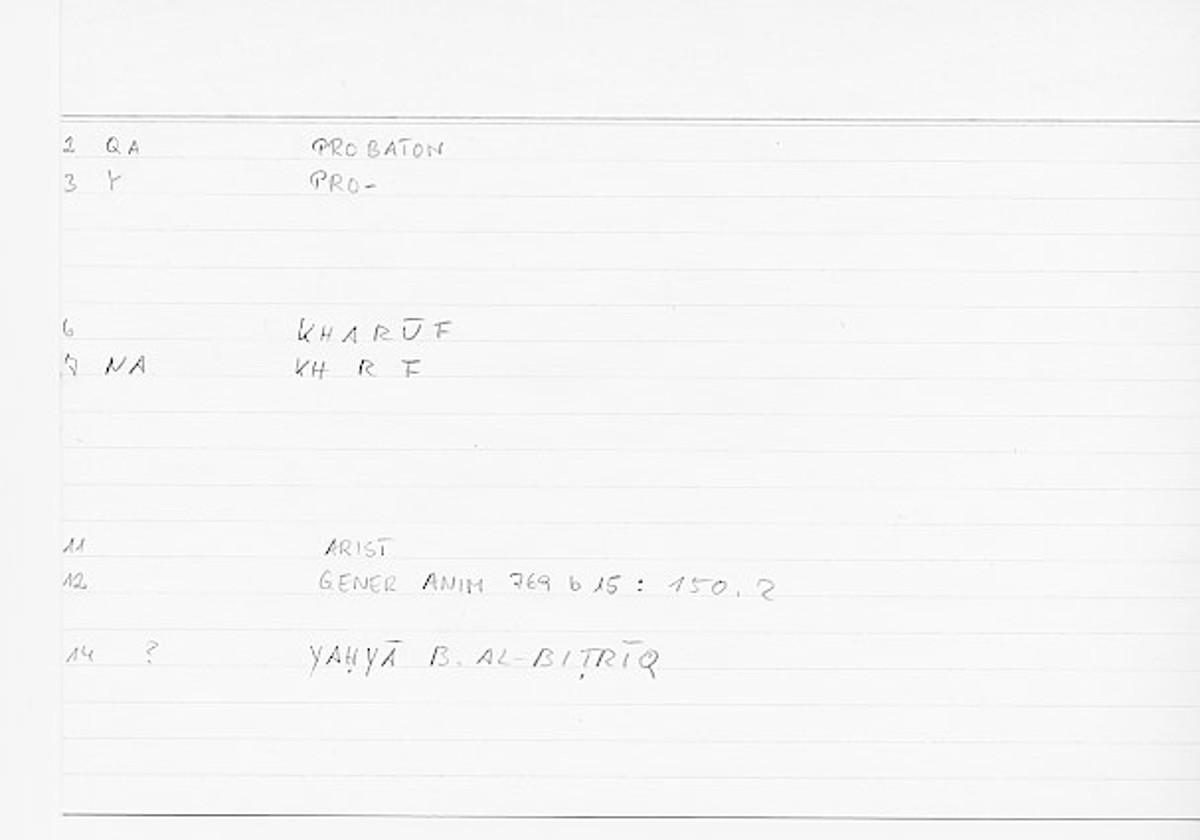 1 QA PROBATON
3 Y PRO-
6 KHARŪF
7 NA KH R F
11 ARIST
12 GENER ANIM 769 b 15 : 150.2
14 ? YAḤYĀ B. AL-BIṬRĪQ